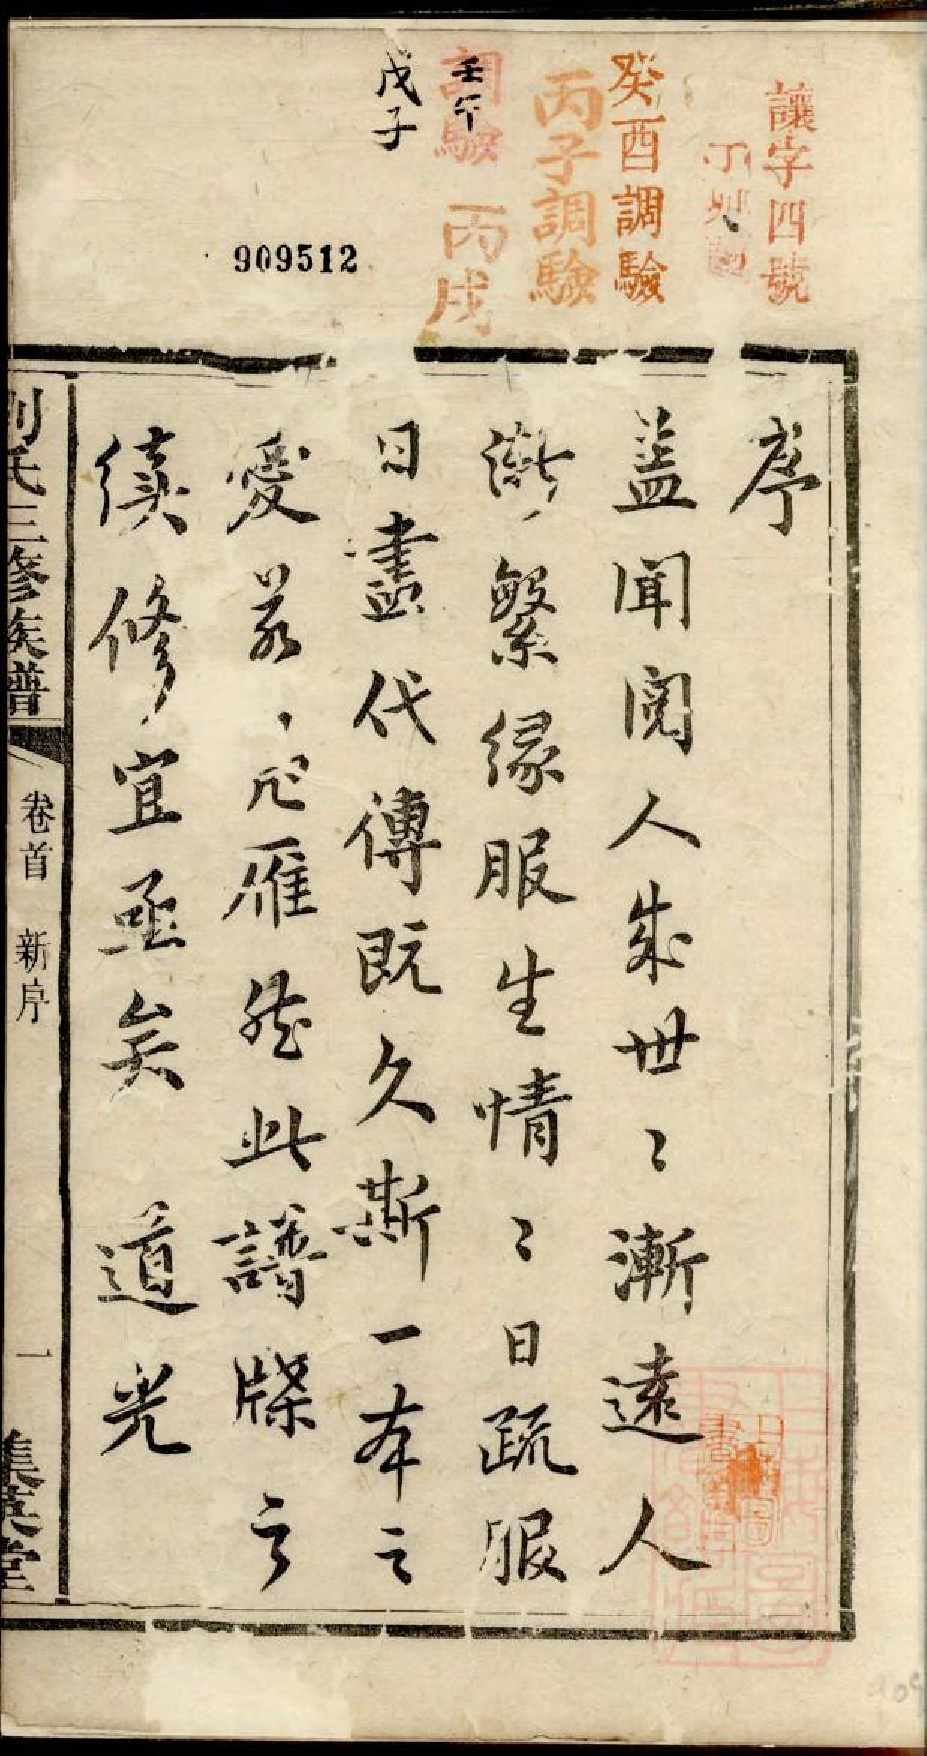 讓字四號
丁卯調
癸酉調驗
丙子調驗
調驗
壬午
丙戌
戊子
909512
序
蓋聞閱人成世〻漸遠人
漸繁緣服生情〻日疏服
日盡代傳既久斯一本之
愛若
雁然此譜牒之
續修宜亟矣 道光
劉氏三修族譜
卷首 新序
一
集英堂